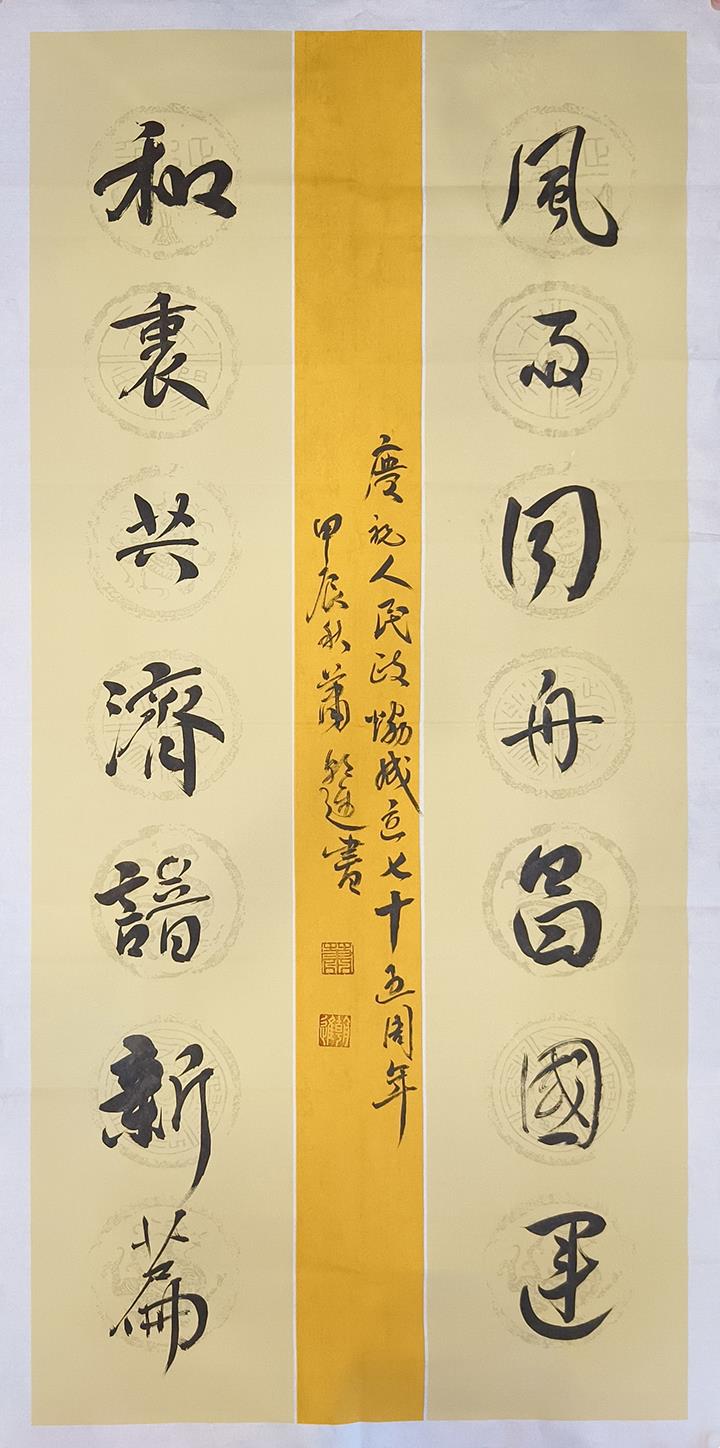 風雨同舟昌國運
慶祝人民政協成立七十五周年
甲辰秋蕭朝進書
和衷共濟譜新篇